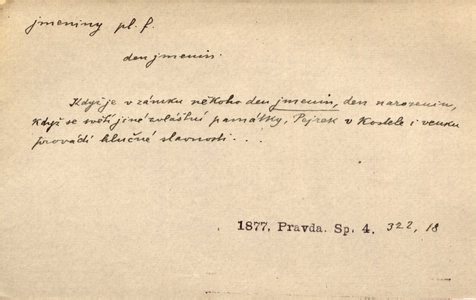 jmeniny pl. f.
den jmenin.
Když je v zámku někoho den jmenin, den narozenin,
když se světí jiné zvláštní památky, Pejrek v Kostele i venku
provádí hlučné slavnosti...
1877. Pravda. Sp. 4. 322, 18